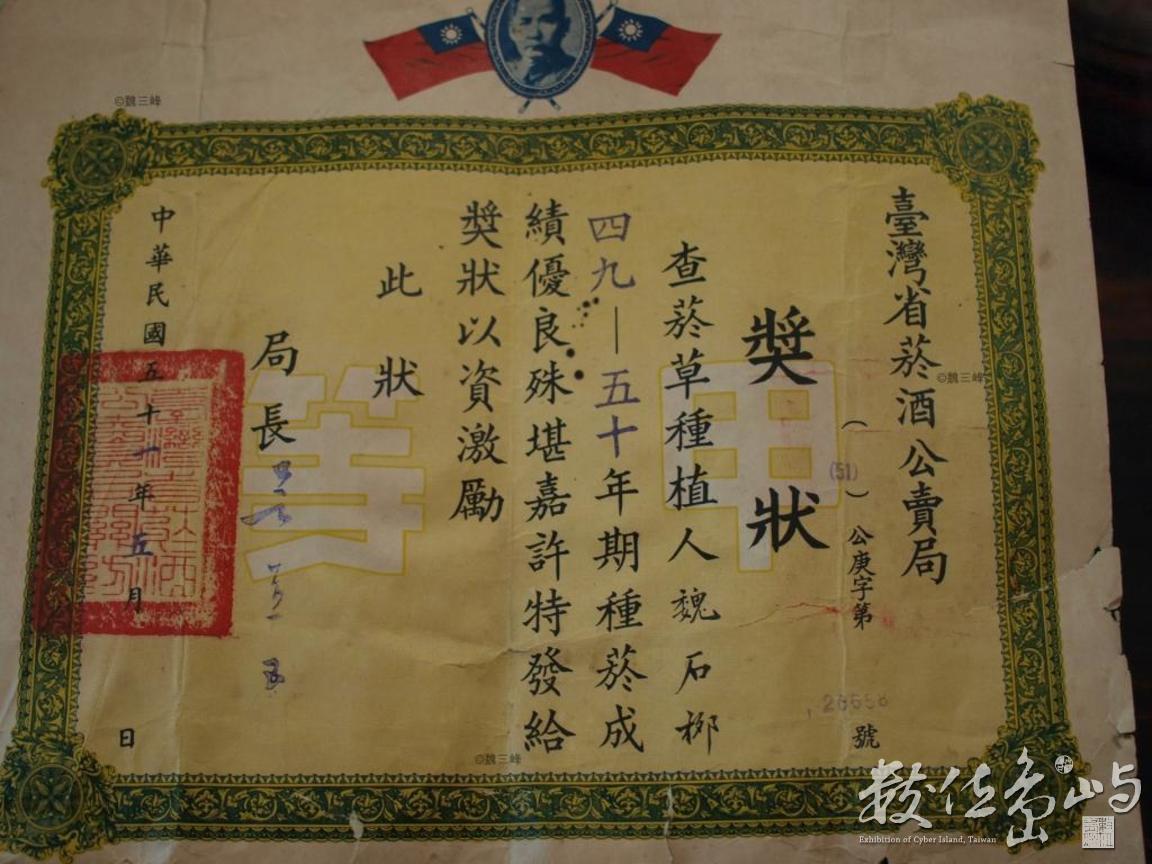 臺灣省菸酒公賣局
獎狀
(51)公庚字第
號
查菸草種植人魏石柳
四九—五十年期種菸成
績優良殊堪嘉許特發給
獎狀以資激勵
此狀
局長
中華民國五十一年五月
日
甲等
©魏三峰
©魏三峰
©魏三峰
數位島嶼
Exhibition of Cyber Island, Taiwan